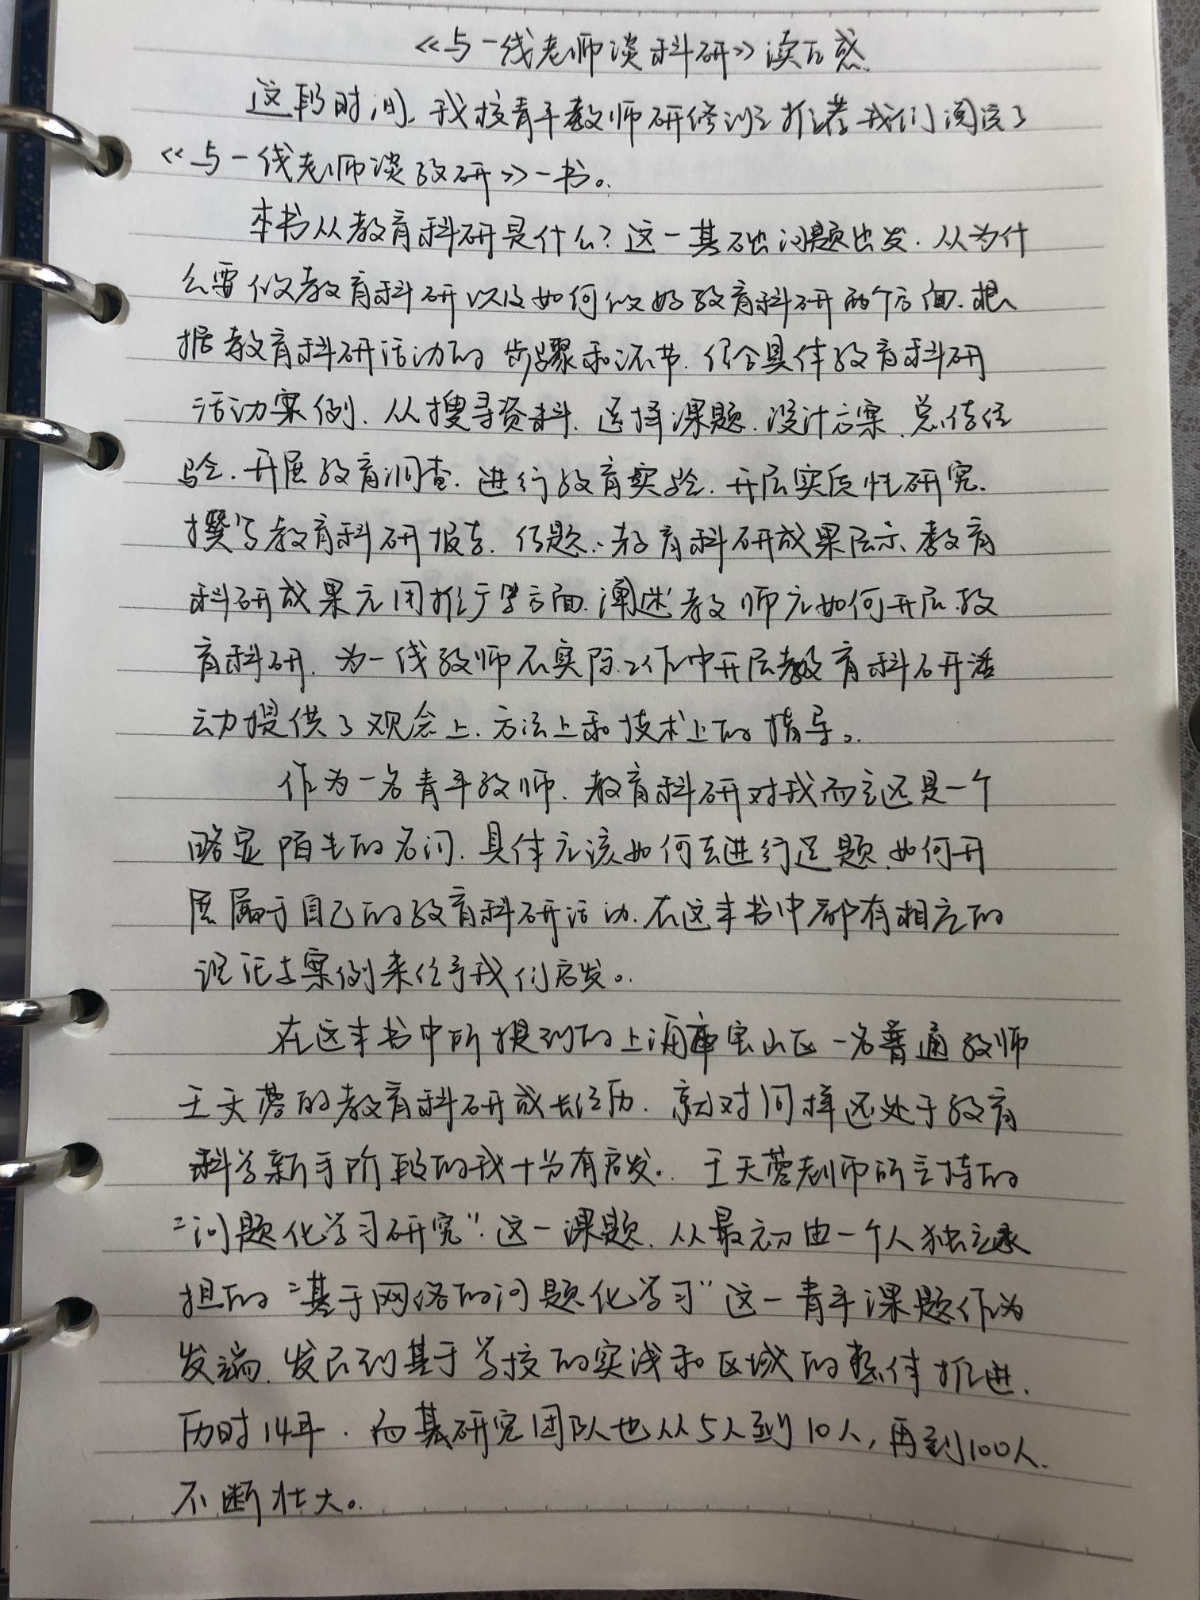 《与一线老师谈科研》读后感
这段时间，我校青年教师研修班推荐我们阅读了
《与一线老师谈教研》一书。
本书从教育科研是什么？这一基础问题出发，从为什
么要做教育科研以及如何做好教育科研两个方面，根
据教育科研活动的步骤和环节，结合具体教育科研
活动案例，从搜寻资料、选择课题、设计方案、总结经
验、开展教育调查、进行教育实验、开展实质性研究、
撰写教育科研报告、结题、教育科研成果展示、教育
科研成果应用推广等方面，阐述教师应如何开展教
育科研，为一线教师在实际工作中开展教育科研活
动提供了观念上、方法上和技术上的指导。
作为一名青年教师，教育科研对我而言还是一个
略显陌生的名词，具体应该如何去进行选题，如何开
展属于自己的教育科研活动，在这本书中都有相应的
理论与案例来给予我们启发。
在这本书中所提到的上海市宝山区一名普通教师
王天蓉的教育科研成长经历，就对同样还处于教育
科学新手阶段的我十分有启发。王天蓉老师所主持的
“问题化学习研究”这一课题，从最初由一个人独立承
担的“基于网络的问题化学习”这一青年课题作为
发端，发展到基于学校的实践和区域的整体推进，
历时14年，而其研究团队也从5人到10人，再到100人，
不断壮大。